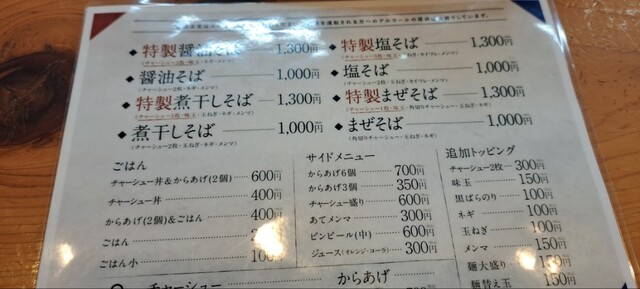 を運転される方へのアルコールの提供は
しております。
◆特製醤油そば 1,300円
(チャーシュー3枚・味玉・ネギ・メンマ)
◆醤油そば 1,000円
(チャーシュー2枚・ネギ・メンマ)
◆特製煮干しそば 1,300円
(チャーシュー3枚・味玉・玉ねぎ・ネギ・メンマ)
◆煮干しそば 1,000円
(チャーシュー2枚・玉ねぎ・ネギ・メンマ)
◆特製塩そば 1,300円
◆塩そば 1,000円
◆特製まぜそば 1,300円
◆まぜそば 1,000円
(角切りチャーシュー・玉ねぎ・ネギ)
ごはん
チャーシュー丼&からあげ(2個) 600円
チャーシュー丼 400円
からあげ(2個)&ごはん 400円
ごはん
ごはん小 100
サイドメニュー
からあげ6個 700円
からあげ3個 350円
チャーシュー盛り 600円
あてメンマ 300円
ビンビール(中) 600円
ジュース(オレンジ・コーラ) 300円
追加トッピング
チャーシュー2枚 300円
味玉 150円
黒ばらのり 100円
ネギ 100円
玉ねぎ 100円
メンマ 150円
麺大盛り 150円
麺替え玉 150円
チャーシュー
からあげ